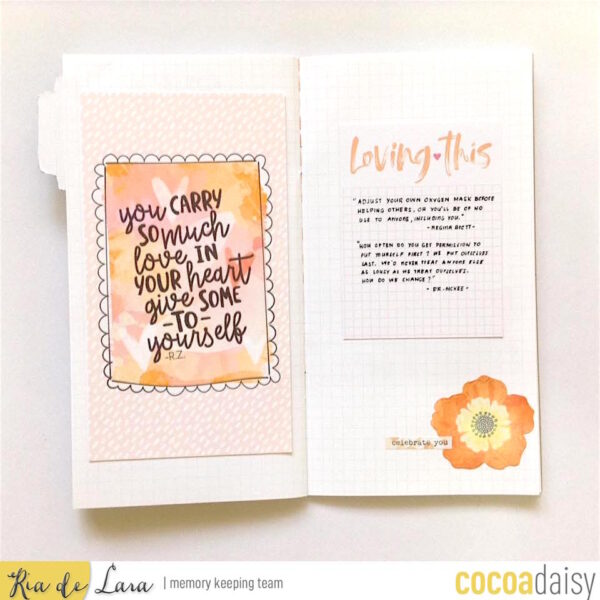 you CARRY
SO much
love IN
YOUR heart
give SOME
-TO-
yourself
-R.Z.
Loving this
"ADJUST YOUR OWN OXYGEN MASK BEFORE
HELPING OTHERS, OR YOU'LL BE OF NO
USE TO ANYONE, INCLUDING YOU."
- REGINA BRETT -
"HOW OFTEN DO YOU GET PERMISSION TO
PUT YOURSELF FIRST? WE PUT OURSELVES
LAST. WE'D NEVER TREAT ANYONE ELSE
AS LOUSY AS WE TREAT OURSELVES.
HOW DO WE CHANGE?"
- DR. MCKEE -
celebrate you
Ria de Lara | memory keeping team
cocoadaisy